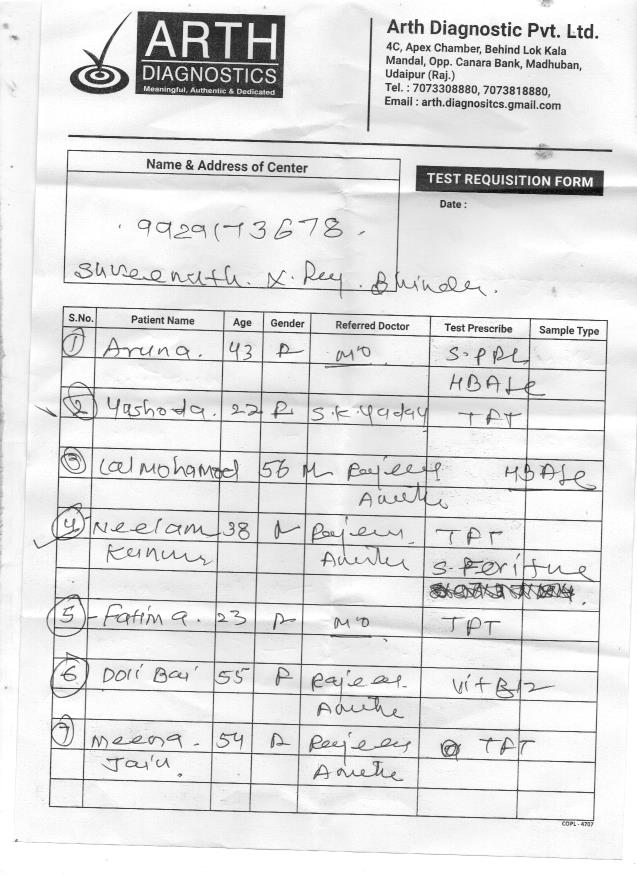 ARTH
DIAGNOSTICS
Meaningful, Authentic & Dedicated
Arth Diagnostic Pvt. Ltd.
4C, Apex Chamber, Behind Lok Kala
Mandal, Opp. Canara Bank, Madhuban,
Udaipur (Raj.)
Tel. : 7073308880, 7073818880,
Email : arth.diagnositcs.gmail.com
Name & Address of Center
TEST REQUISITION FORM
Date :
9929173678
Shreenath. X. Ray. Bhinder.
S.No. Patient Name Age Gender Referred Doctor Test Prescribe Sample Type
1 Aruna. 43 F MO
HBA1c
2 Yashoda. 22 F S.K. Yadav TFT
3 Lal Mohamad 56 M Rajeev HBA1c
4 Neelam 38 F Rajeev TFT
5 - Fatima. 23 F MO TFT
6 Doli Bai 55 F Rajeev Vit B12
7 Meena. 54 F Rajeev TFT
Jain.
COPL - 4707